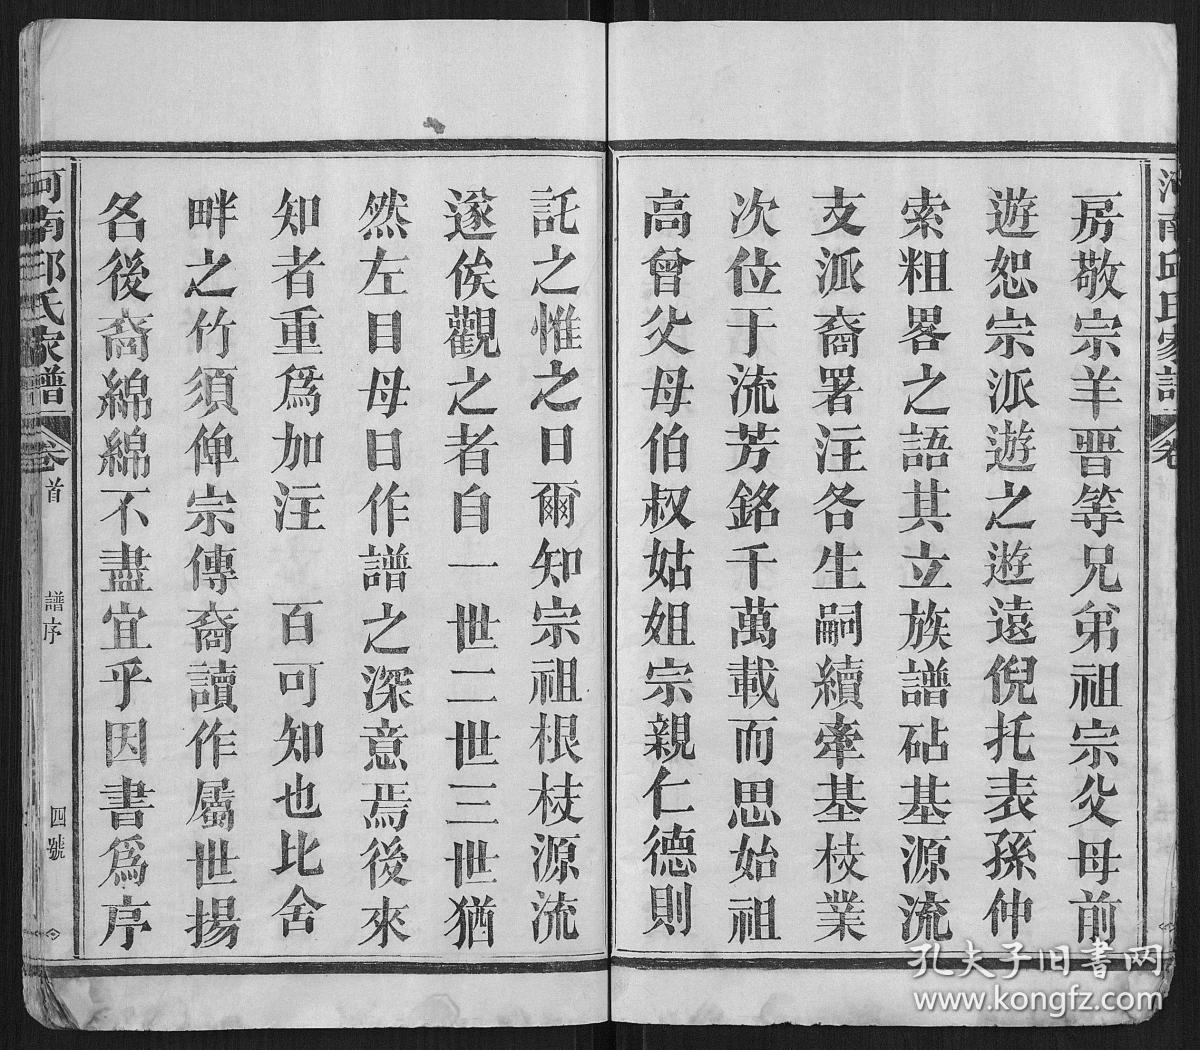 河南邱氏家譜
卷
房敬宗羊晋等兄弟祖宗父母前
遊恕宗派遊之遊遠倪托表孫仲
索粗畧之語共立族譜砧基源流
支派裔署注各生嗣續牽基枝業
次位于流芳銘千萬載而思始祖
高曾父母伯叔姑姐宗親仁德則
託之惟之日爾知宗祖根枝源流
遂俟觀之者自一世二世三世猶
然左目母日作譜之深意焉後來
知者重爲加注 百可知也比舍
畔之竹須俾宗傳裔讀作屬世揚
名後裔綿綿不盡宜乎因書爲序
河南邱氏家譜
卷首 譜序 四號
孔夫子旧书网
www.kongfz.com